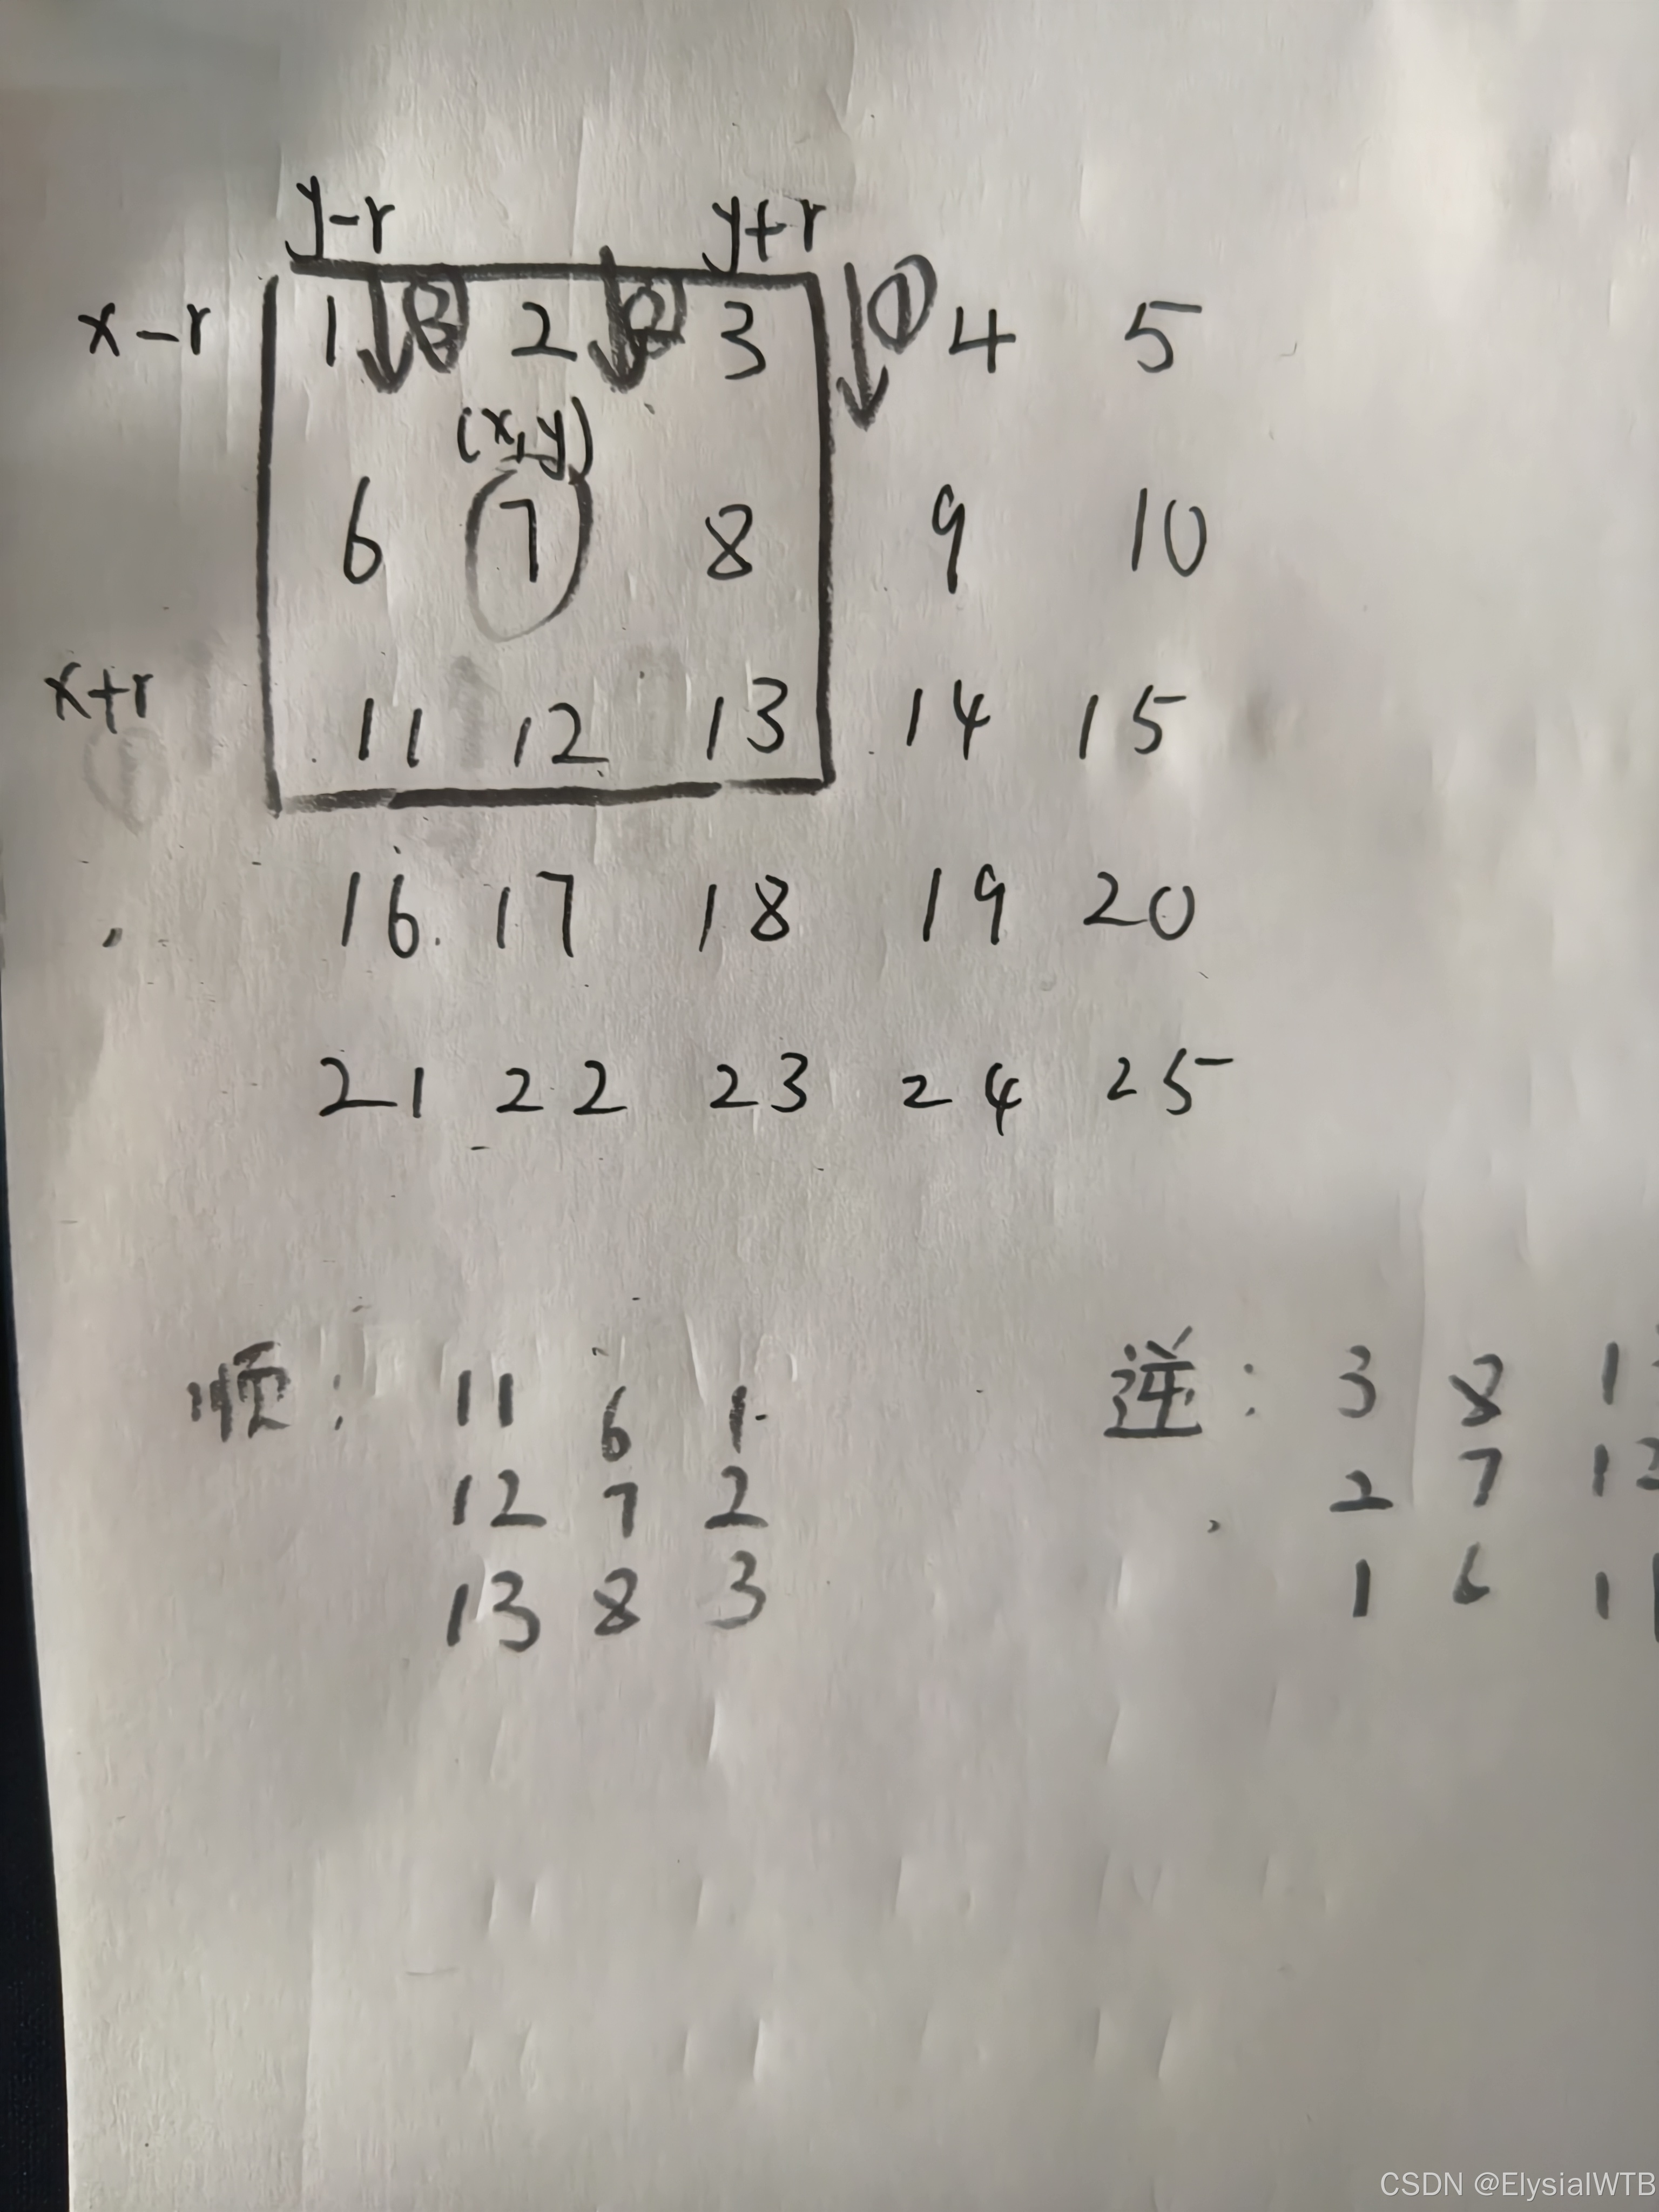 y-r y+r
x-r 1 ③ 2 ② 3 ① 4 5
(x,y)
6 7 8 9 10
x+r 11 12 13 14 15
16 17 18 19 20
21 22 23 24 25
顺: 11 6 1 逆: 3 8 1
12 7 2 2 7 12
13 8 3 1 6 11
CSDN @ElysialWTB